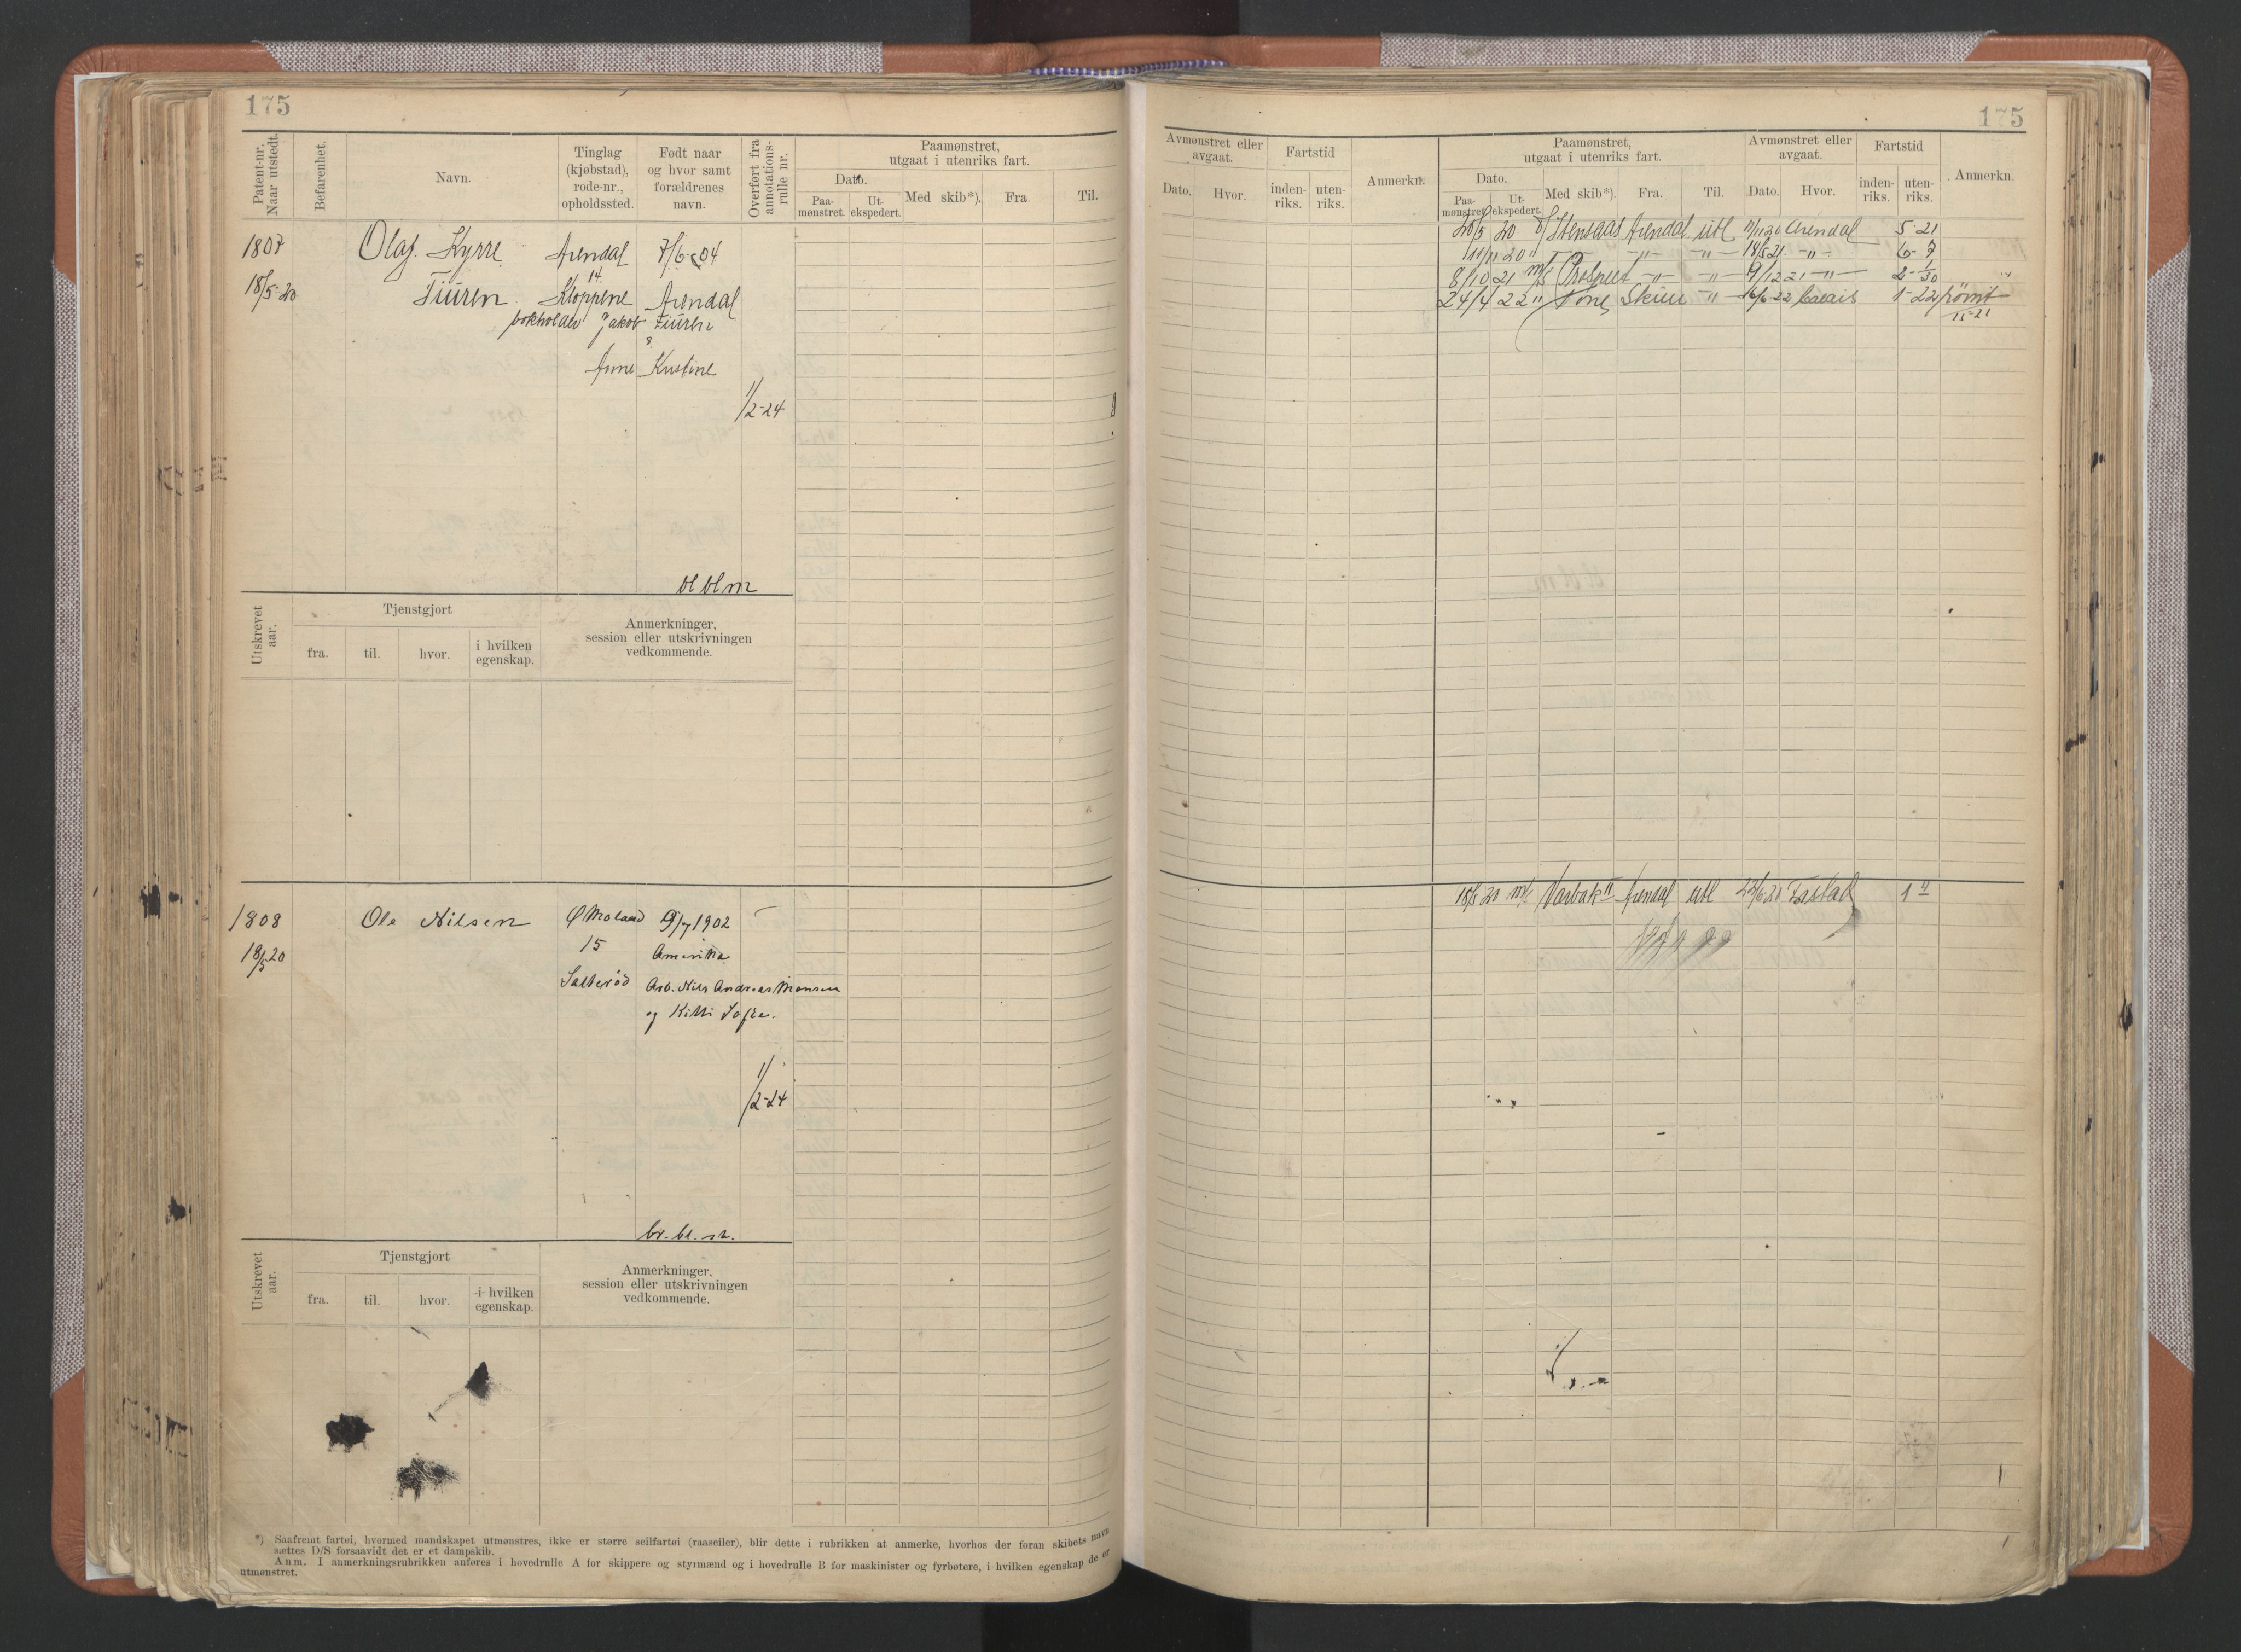 175
175
Patent-nr.
Naar utstedt.
Befarenhet.
Navn.
Tinglag
(kjøbstad),
rode-nr.,
opholdssted.
Født naar
og hvor samt
forældrenes
navn.
Overført fra
annotations-
rulle nr.
Paamønstret,
utgaat i utenriks fart.
Dato.
Paa-
mønstret.
Ut-
ekspedert.
Med skib*).
Fra.
Til.
1807
18/5-20
Olaf Kyrre
Fiüren
Arendal
14
Kloppene
7/6-04
Arendal
bokholder Jakob Fiüren
Anne Kristine
1/2-24
bl bl m
Utskrevet
aar.
Tjenstgjort
fra.
til.
hvor.
i hvilken
egenskap.
Anmerkninger,
session eller utskrivningen
vedkommende.
1808
18/5 20
Ole Nilsen
Ø Moland
15
Salterød
9/7 1902
Amerika
Arb. Nils Andreas Monsen
og Kitti Sofie.
1/2-24
br. bl. m.
Utskrevet
aar.
Tjenstgjort
fra.
til.
hvor.
i hvilken
egenskap.
Anmerkninger,
session eller utskrivningen
vedkommende.
*) Saafremt fartøi, hvormed mandskapet utmønstres, ikke er større seilfartøi (raaseiler), blir dette i rubrikken at anmerke, hvorhos der foran skibets navn
sættes D/S forsaavidt det er et dampskib.
Anm. I anmerkningsrubrikken anføres i hovedrulle A for skippere og styrmænd og i hovedrulle B for maskinister og fyrbøtere, i hvilken egenskap de er
utmønstret.
Avmønstret eller
avgaat.
Dato.
Hvor.
Fartstid
inden-
riks.
uten-
riks.
Anmerkn.
Paamønstret,
utgaat i utenriks fart.
Dato.
Paa-
mønstret.
Ut-
ekspedert.
Med skib*).
Fra.
Til.
Avmønstret eller
avgaat.
Dato.
Hvor.
Fartstid
inden-
riks.
uten-
riks.
Anmerkn.
20/5 20 Stensaas Arendal utl 11/11 20 Arendal 5-21
11/11 20 " -"- -"- 18/5 21 -"- 6-7
8/10 21 m/s Prospect -"- -"- 9/12 21 -"- 2-1/30
24/4 22 " Skien -"- 16/6-22 Calais 1-22 rømt
15-21
18/5 20 m/s Varbak II Arendal utl 22/6 20 1 4